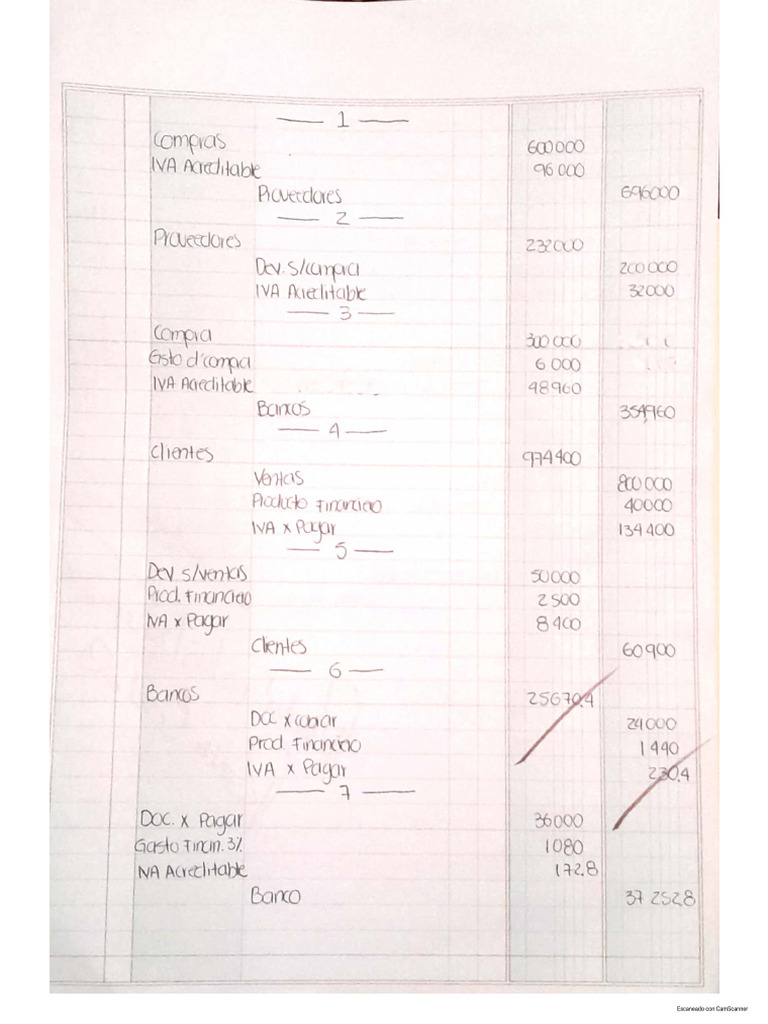 1
Compras 600000
IVA Acreditable 96 000
Proveedores 696000
2
Proveedores 232000
Dev. s/compra 200000
IVA Acreditable 32000
3
Compra 300 000
Gsto d'compra 6 000
IVA Acreditable 48960
Bancos 354,960
4
Clientes 974400
Ventas 800 000
Producto Financiero 40000
IVA x Pagar 134 400
5
Dev s/ventas 50000
Prod. Financiero 2 500
IVA x Pagar 8 400
Clientes 60 900
6
Bancos 25670.4
Doc x cobrar 24000
Prod. Financiero 1 440
IVA x Pagar 230.4
7
Doc. x Pagar 36000
Gasto Financ. 3% 1080
IVA Acreditable 172.8
Banco 37 252.8
Escaneado con CamScanner